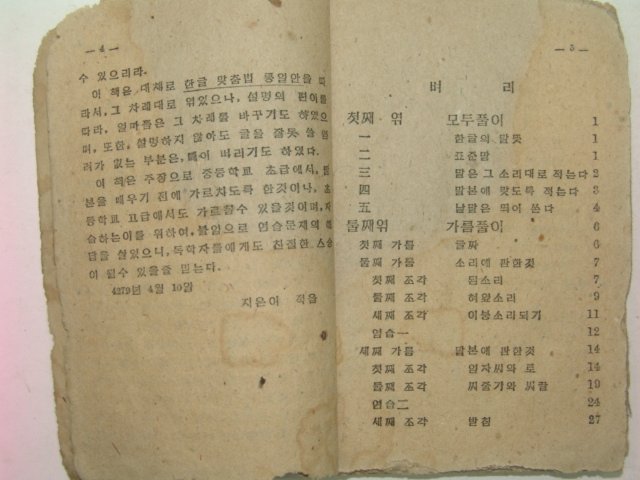 — 4 —
수 있으리라.
이 책은 대체로 한글 맞춤법 통일안을 따
라서, 그 차례대로 엮었으나, 설명의 편이를
따라, 얼마쯤은 그 차례를 바꾸기도 하였으
며, 또한, 설명하지 않아도 글을 잘못 쓸 염
려가 없는 부분은, 빼어 버리기도 하였다.
이 책은 주장으로 중등학교 초급에서, 말
본을 배우기 전에 가르치도록 한것이나, 초
등학교 고급에서도 가르칠수 있을것이며, 자
습하는이를 위하여, 붙임으로 연습문제의 해
답을 실었으니, 독학자들에게도 친절한 스승
이 될수 있을을 믿는다.
4279년 4월 10일
지은이 적음
— 5 —
벼 리
첫째 엮 모두풀이 1
一 한글의 말뜻 1
二 표준말 1
三 말은 그 소리대로 적는다 2
四 말본에 맞도록 적는다 3
五 낱말은 띄어 쓴다 4
둘째엮 가름풀이 6
첫째 가름 글짜 6
둘째 가름 소리에 관한것 7
첫째 조각 된소리 7
둘째 조각 혀옆소리 9
세째 조각 이붕소리되기 11
연습一 12
세째 가름 말본에 관한것 14
첫째 조각 임자씨와 토 14
둘째 조각 씨줄기와 씨끝 19
연습二 24
세째 조각 받침 27